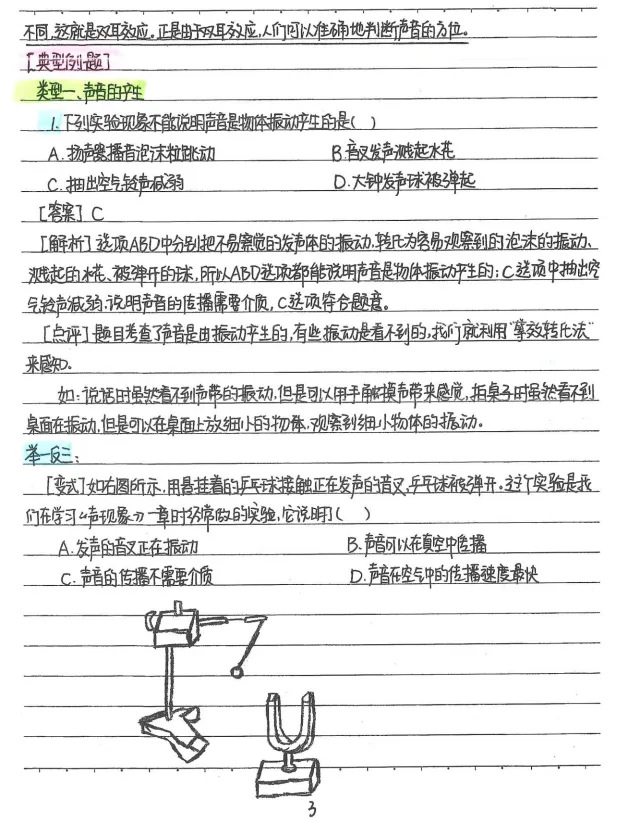 不同,这就是双耳效应。正是由于双耳效应,人们可以准确地判断声音的方位。
[典型例题]
类型一、声音的产生
1.下列实验现象不能说明声音是物体振动产生的是( )
A. 扬声器播音泡沫粒跳动 B.音叉发声溅起水花
C. 抽出空气铃声减弱 D.大钟发声球被弹起
[答案] C
[解析] 选项ABD中分别把不易察觉的发声体的振动,转化为容易观察到的泡沫的振动、
溅起的水花、被弹开的球,所以ABD选项都能说明声音是物体振动产生的;C选项中抽出空
气铃声减弱.说明声音的传播需要介质,C选项符合题意。
[点评] 题目考查了声音是由振动产生的,有些振动是看不到的,我们就利用“等效转化法”
来感知。
如:说话时虽然看不到声带的振动,但是可以用手触摸声带来感觉,拍桌子时虽然看不到
桌面在振动,但是可以在桌面上放细小的物体,观察到细小物体的振动。
举一反三:
[变式]如右图所示,用悬挂着的乒乓球接触正在发声的音叉,乒乓球被弹开。这个实验是我
们在学习《声现象》一章时经常做的实验,它说明了( )
A.发声的音叉正在振动 B.声音可以在真空中传播
C. 声音的传播不需要介质 D.声音在空气中的传播速度最快
3